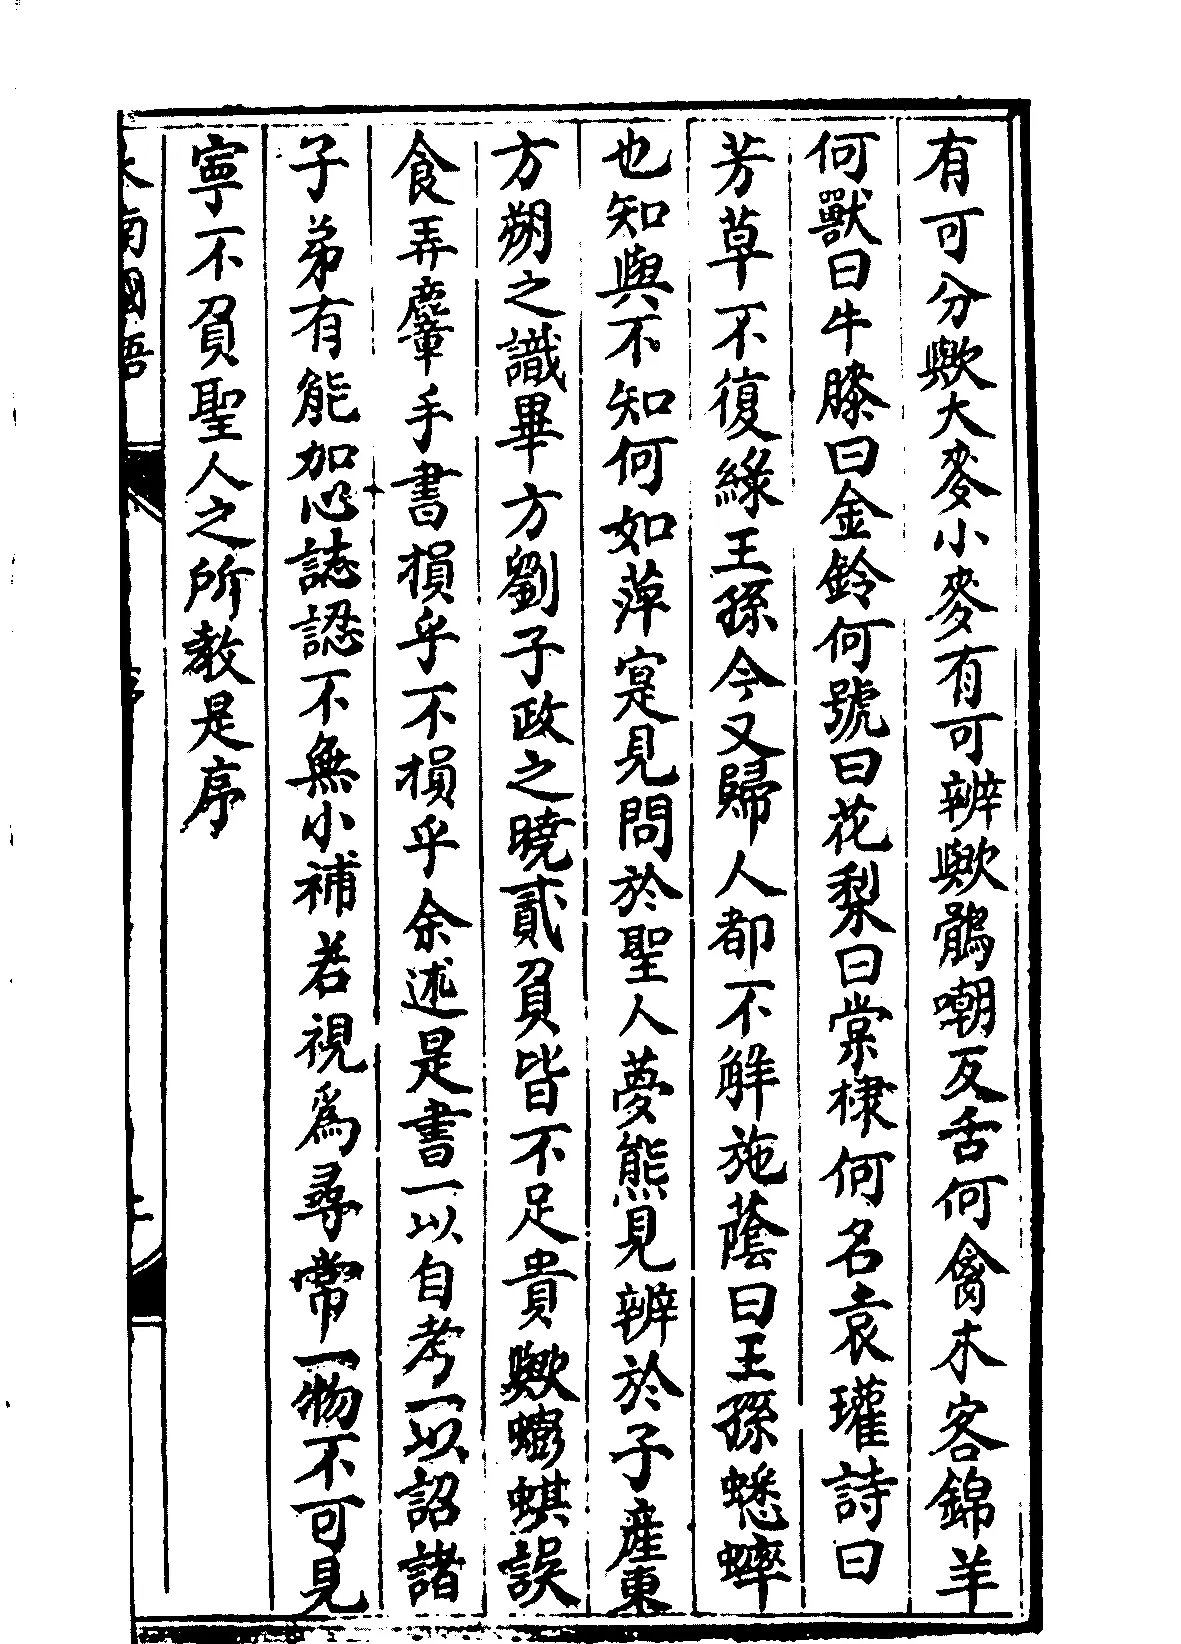 有可分歟大麥小麥有可辨歟鶻嘲反舌何禽木客錦羊
何獸曰牛膝曰金鈴何號曰花梨曰棠棣何名袁瓘詩曰
芳草不復綠王孫今又歸人都不解施蔭曰王孫蟋蟀
也知與不知何如萍寔見問於聖人夢熊見辨於子產東
方朔之識畢方劉子政之曉貳負皆不足貴歟蟛蜞誤
食弄麞手書損乎不損乎余述是書一以自考一以詔諸
子弟有能加心誌認不無小補若視爲尋常一物不可見
寧不負聖人之所教是序
南國語
序